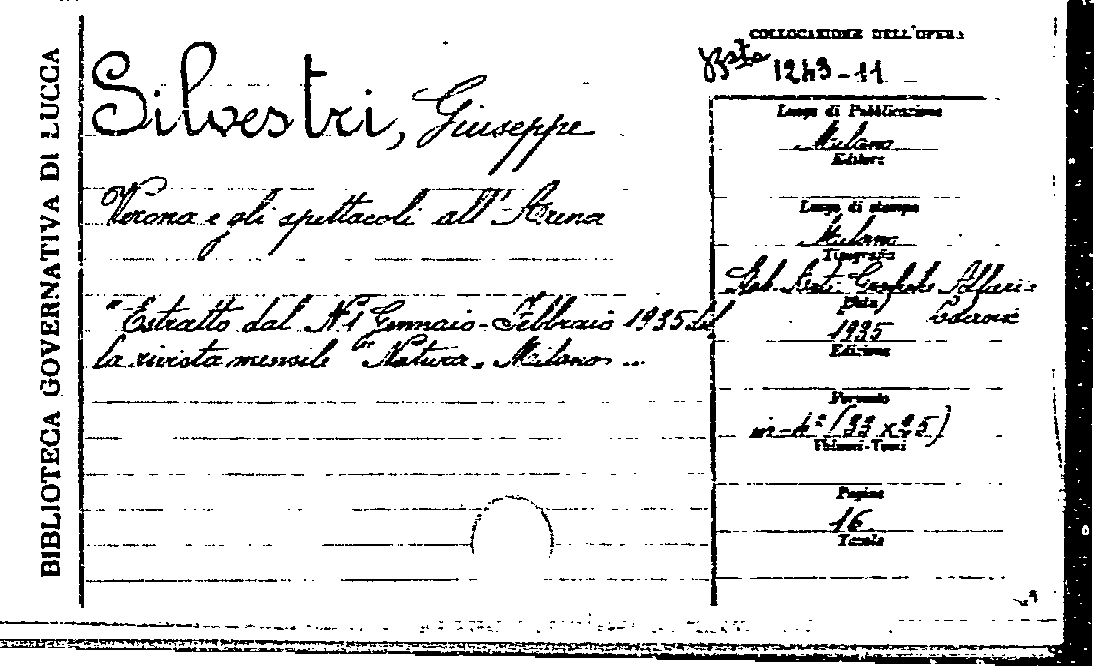 BIBLIOTECA GOVERNATIVA DI LUCCA
Silvestri, Giuseppe
Verona e gli spettacoli all'Arena
"Estratto dal N. 1 Gennaio-Febbraio 1935 del
la rivista mensile "Natura, Milano...
COLLOCAZIONE DELL'OPERA
Bsta 1243-11
Luogo di Pubblicazione
Milano
Editore
Luogo di stampa
Milano
Tipografia
Grafiche Alfieri e
Data
Lacroix
1935
Edizione
Formato
in-4° (33 x 25)
Volumi-Tomi
Pagine
16
Tavole